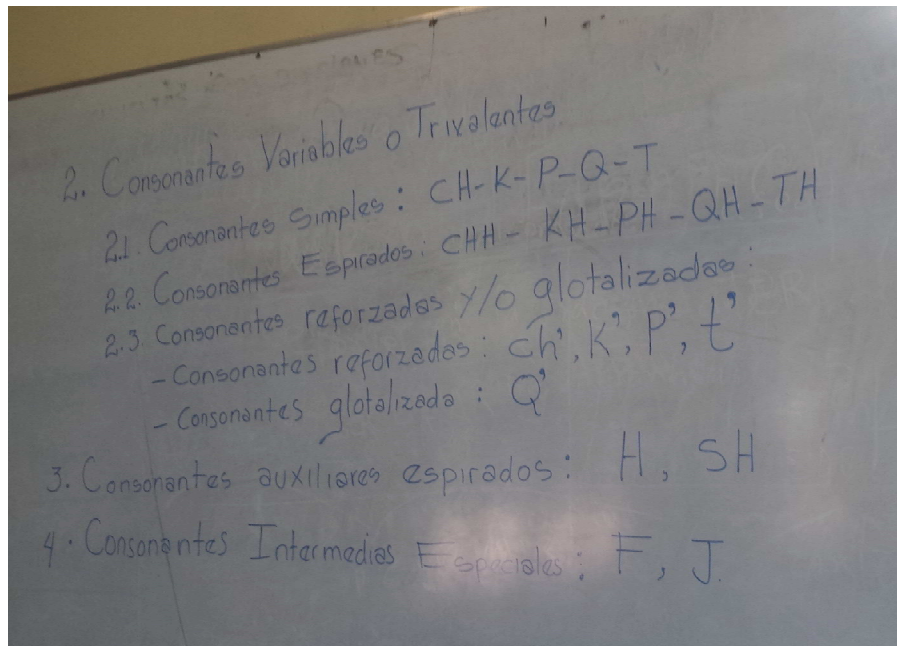 2. Consonantes Variables o Trivalentes
2.1. Consonantes Simples: CH-K-P-Q-T
2.2. Consonantes Espirados: CHH - KH-PH-QH-TH
2.3 Consonantes reforzadas y/o glotalizadas:
- Consonantes reforzadas: ch', K', P', t'
- Consonantes glotalizada: Q'
3. Consonantes auxiliares espirados: H, SH
4. Consonantes Intermedias Especiales: F, J.